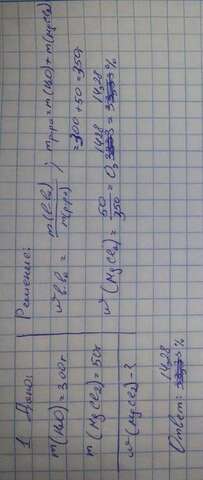 1 Дано:
m(H2O)=300г
m(MgCl2)=50г
w(MgCl2)-?
Решение:
w в.ва = m(в.ва)/m(р.ра) ; m р-ра = m(H2O)+m(MgCl2)
=300+50=350г
w(MgCl2) = 50/350 = 0,1428 = 14,28%
Ответ: 14,28%